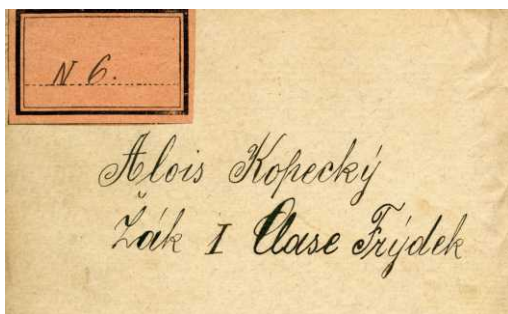 N 6.
Alois Kopecký
Žák I Clase Frýdek